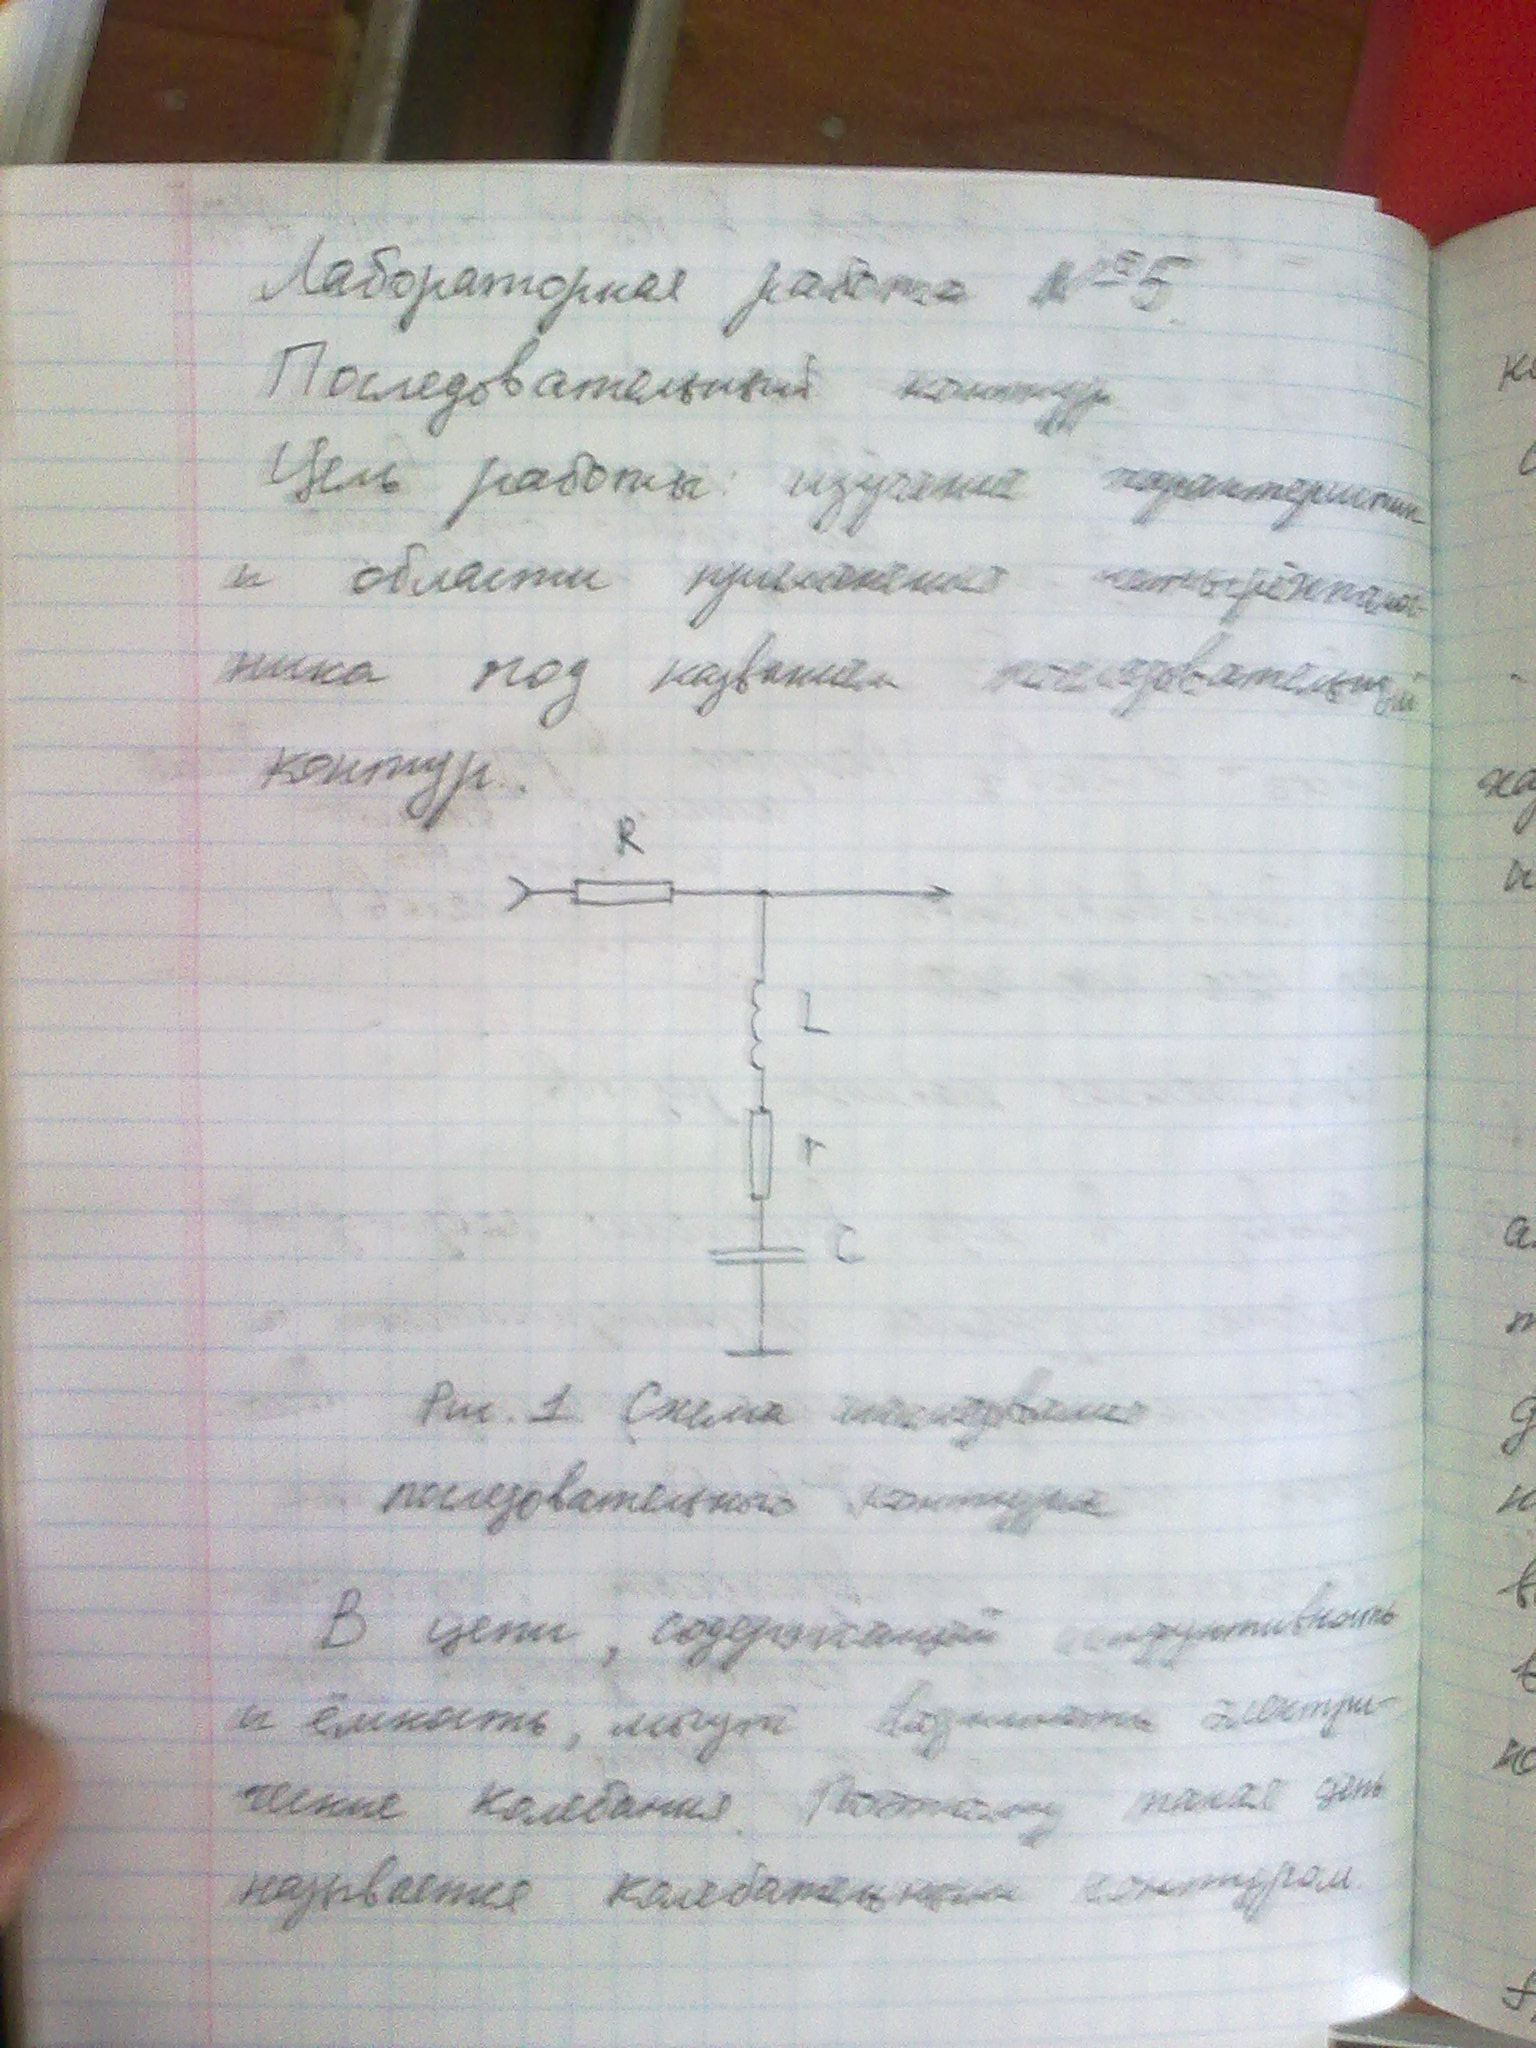 Лабораторная работа №5
Последовательный контур
Цель работы: изучение характеристик
и области применения четырёхполюс-
ника под названием последовательный
контур.
R
L
r
C
Рис. 1 Схема исследования
последовательного контура
В цепи, содержащей индуктивность
и ёмкость, могут возникать электри-
ческие колебания. Поэтому такая цепь
называется колебательным контуром.